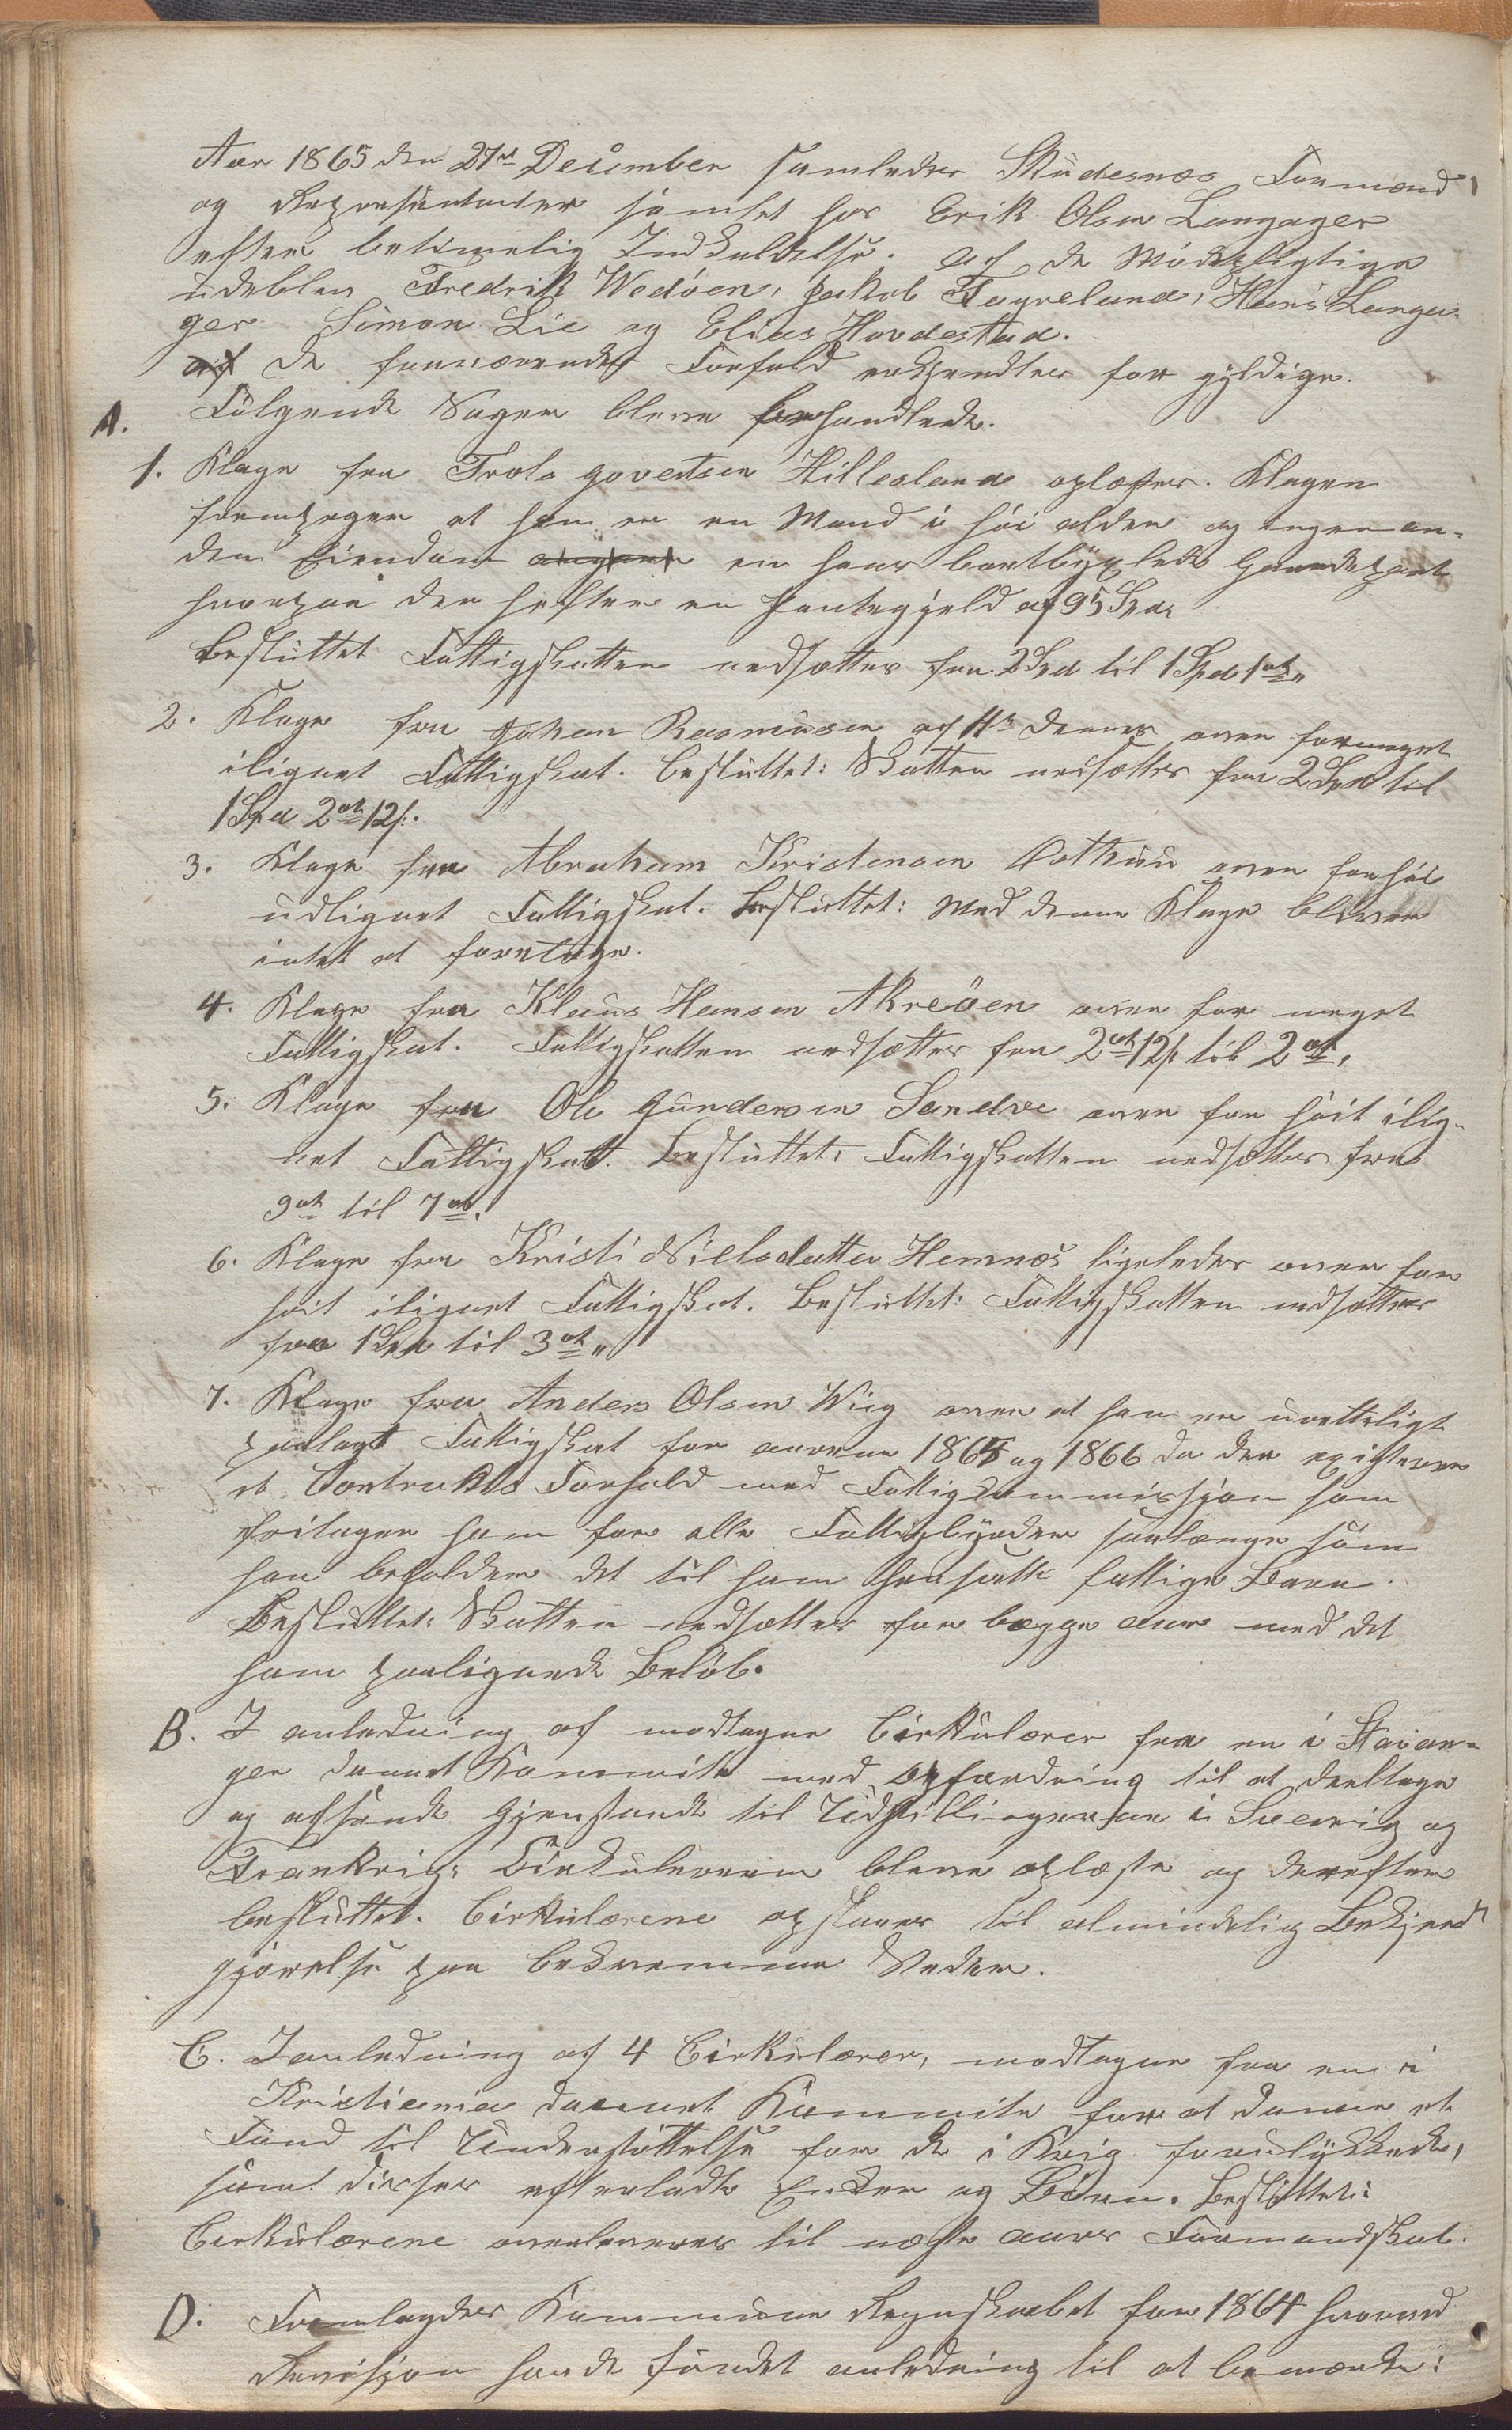 Aar 1865 den 27de December samledes Skudesnæs Formænd
og Repræsentanter samlet hos Erik Olsen Langager
efter betimelig Indkaldelse. Af de Mødepligtige
udeblev Fredrik Wedøen, Jakob Fagreland, Hans Langa-
ger Simon Lie og Elias Hovdestad.
de fraværendes Forfald erkjendtes for gyldige.
A. Følgende Sager bleve behandlede.
1. Klage fra Trols Govertsen Hillesland oplæstes. Klagen
fremhæver at han er en Mand i høi alder og ingen an-
den Eiendom en hans bortbyxlede Gaardepart
hvorpaa der hefter en Pantegjeld af 95 Spd.
Besluttet Fattigskatten nedsættes fra 2 Spd til 1 Spd 1 ort"
2. Klage fra Johan Rasmussen af 11te dennes over formeget
ilignet Fattigskat. Besluttet: Skatten nedsættes fra 2 Spd til
1 Spd 2 ort 12 s.
3. Klage fra Abraham Kristensen Østhuu over forhøi
udlignet Fattigskat. Besluttet: Med denne Klage bliver
intet at foretage.
4. Klage fra Klaus Hansen Akreøen over for meget
Fattigskat. Fattigskatten nedsættes fra 2 ort 12 s til 2 ort.
5. Klage fra Ole Gundersen Sandve over for høit ilig-
net Fattigskat. Besluttet: Fattigskatten nedsættes fra
9 ort til 7 ort.
6. Klage fra Kristi Nielsdatter Hemnæs ligeledes over for
høit ilignet Fattigskat. Besluttet: Fattigskatten nedsættes
fra 1 Spd til 3 ort"
7. Klage fra Anders Olsen Wiig over at han er uretteligt
paalagt Fattigskat for aarene 1865 og 1866 da der existerer
et Contrakts Forhold med Fattigkommissjon som
fritager ham for alle Fattigbyrder saalænge som
han beholder det til ham hensatte fattige Barn.
Besluttet: Skatten nedsættes for begge aar med det
ham paalignede Beløb.
B. I anledning af modtagne Cirkulærer fra en i Stavan-
ger dannet Kommite med opfordring til at deeltage
og afsende Gjenstande til Udstillingerne i Sverrig og
Frankrig. Cirkulærerne bleve oplæste og derefter
besluttet. Cirkulærene opslaaes til almindelig Bekjendt
gjørelse paa bekvemme Steder.
C. I anledning af 4 Cirkulærer, modtagne fra en i
Kristiania dannet Kommite for at danne et
Fond til Understøttelse for de i Krig forulykkede,
samt disses efterladte Enker og Børn. Besluttet:
Cirkulærene overleveres til næste aars Formandskab.
D. Fremlagdes Kommune Regnskabet for 1864 hvorved
Revisjon havde fundet anledning til at bemærke: